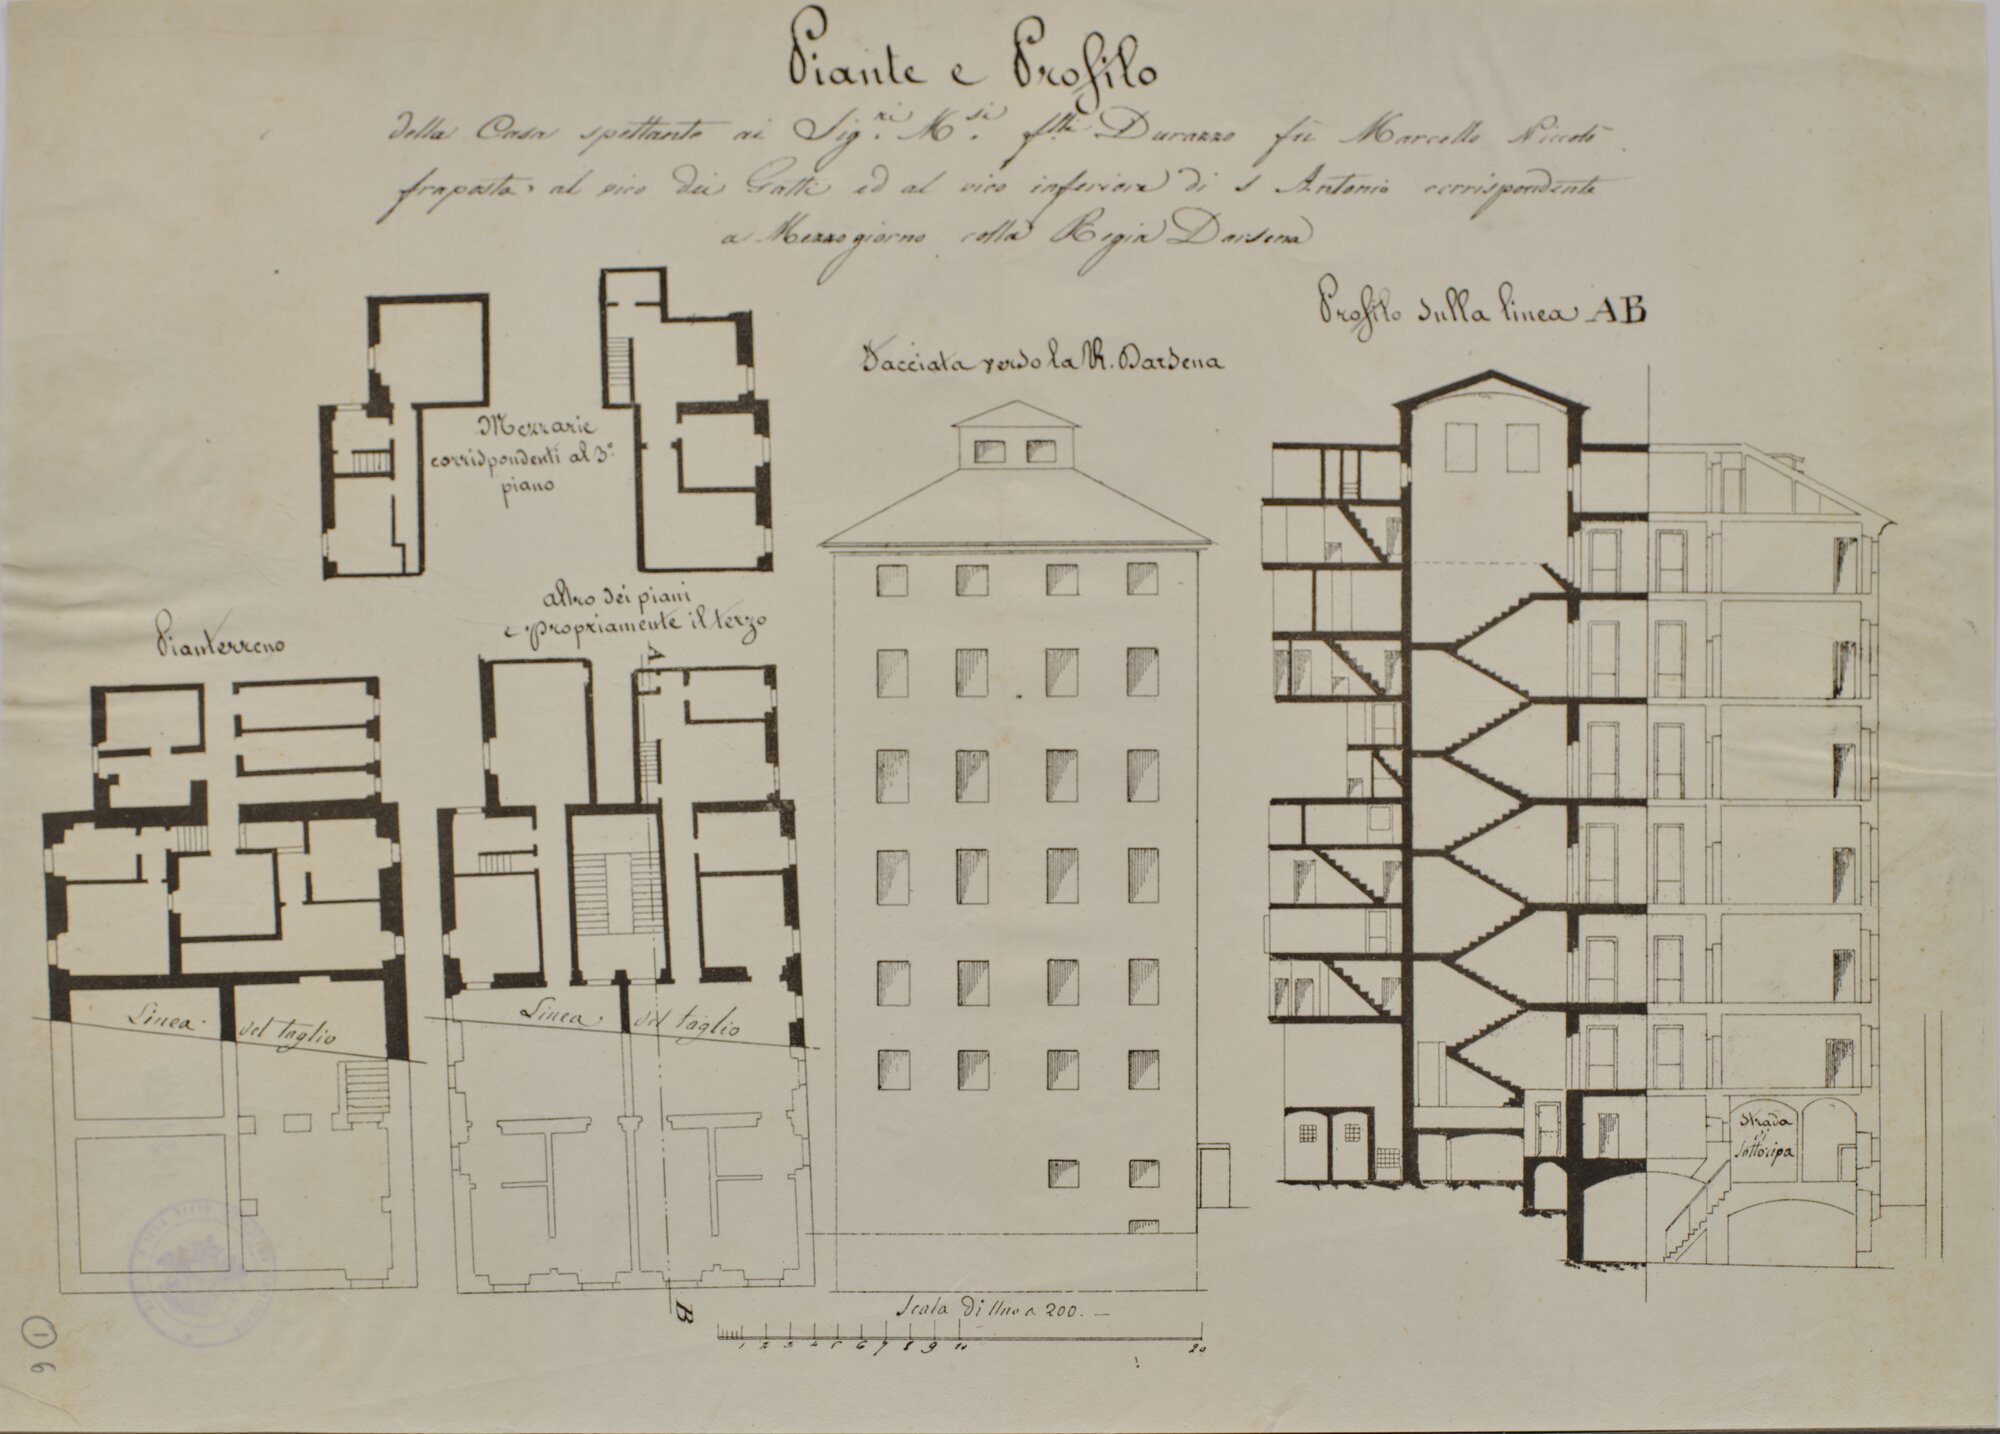 Piante e Profilo
della Casa spettante ai Sig.ri M.si f.lli Durazzo fù Marcello Niccolò
fraposta al vico dei Gatti ed al vico inferiore di S Antonio corrispondente
a Mezzogiorno colla Regia Darsena
Profilo sulla linea AB
Facciata verso la R. Darsena
Mezzarie
corrispondenti al 3.°
piano
altro dei piani
e propriamente il terzo
Pianterreno
A
Linea del taglio
Linea del taglio
Strada
di
Sottoripa
B
Scala di Uno a 200. —
1 2 3 4 5 6 7 8 9 10 20
1
6